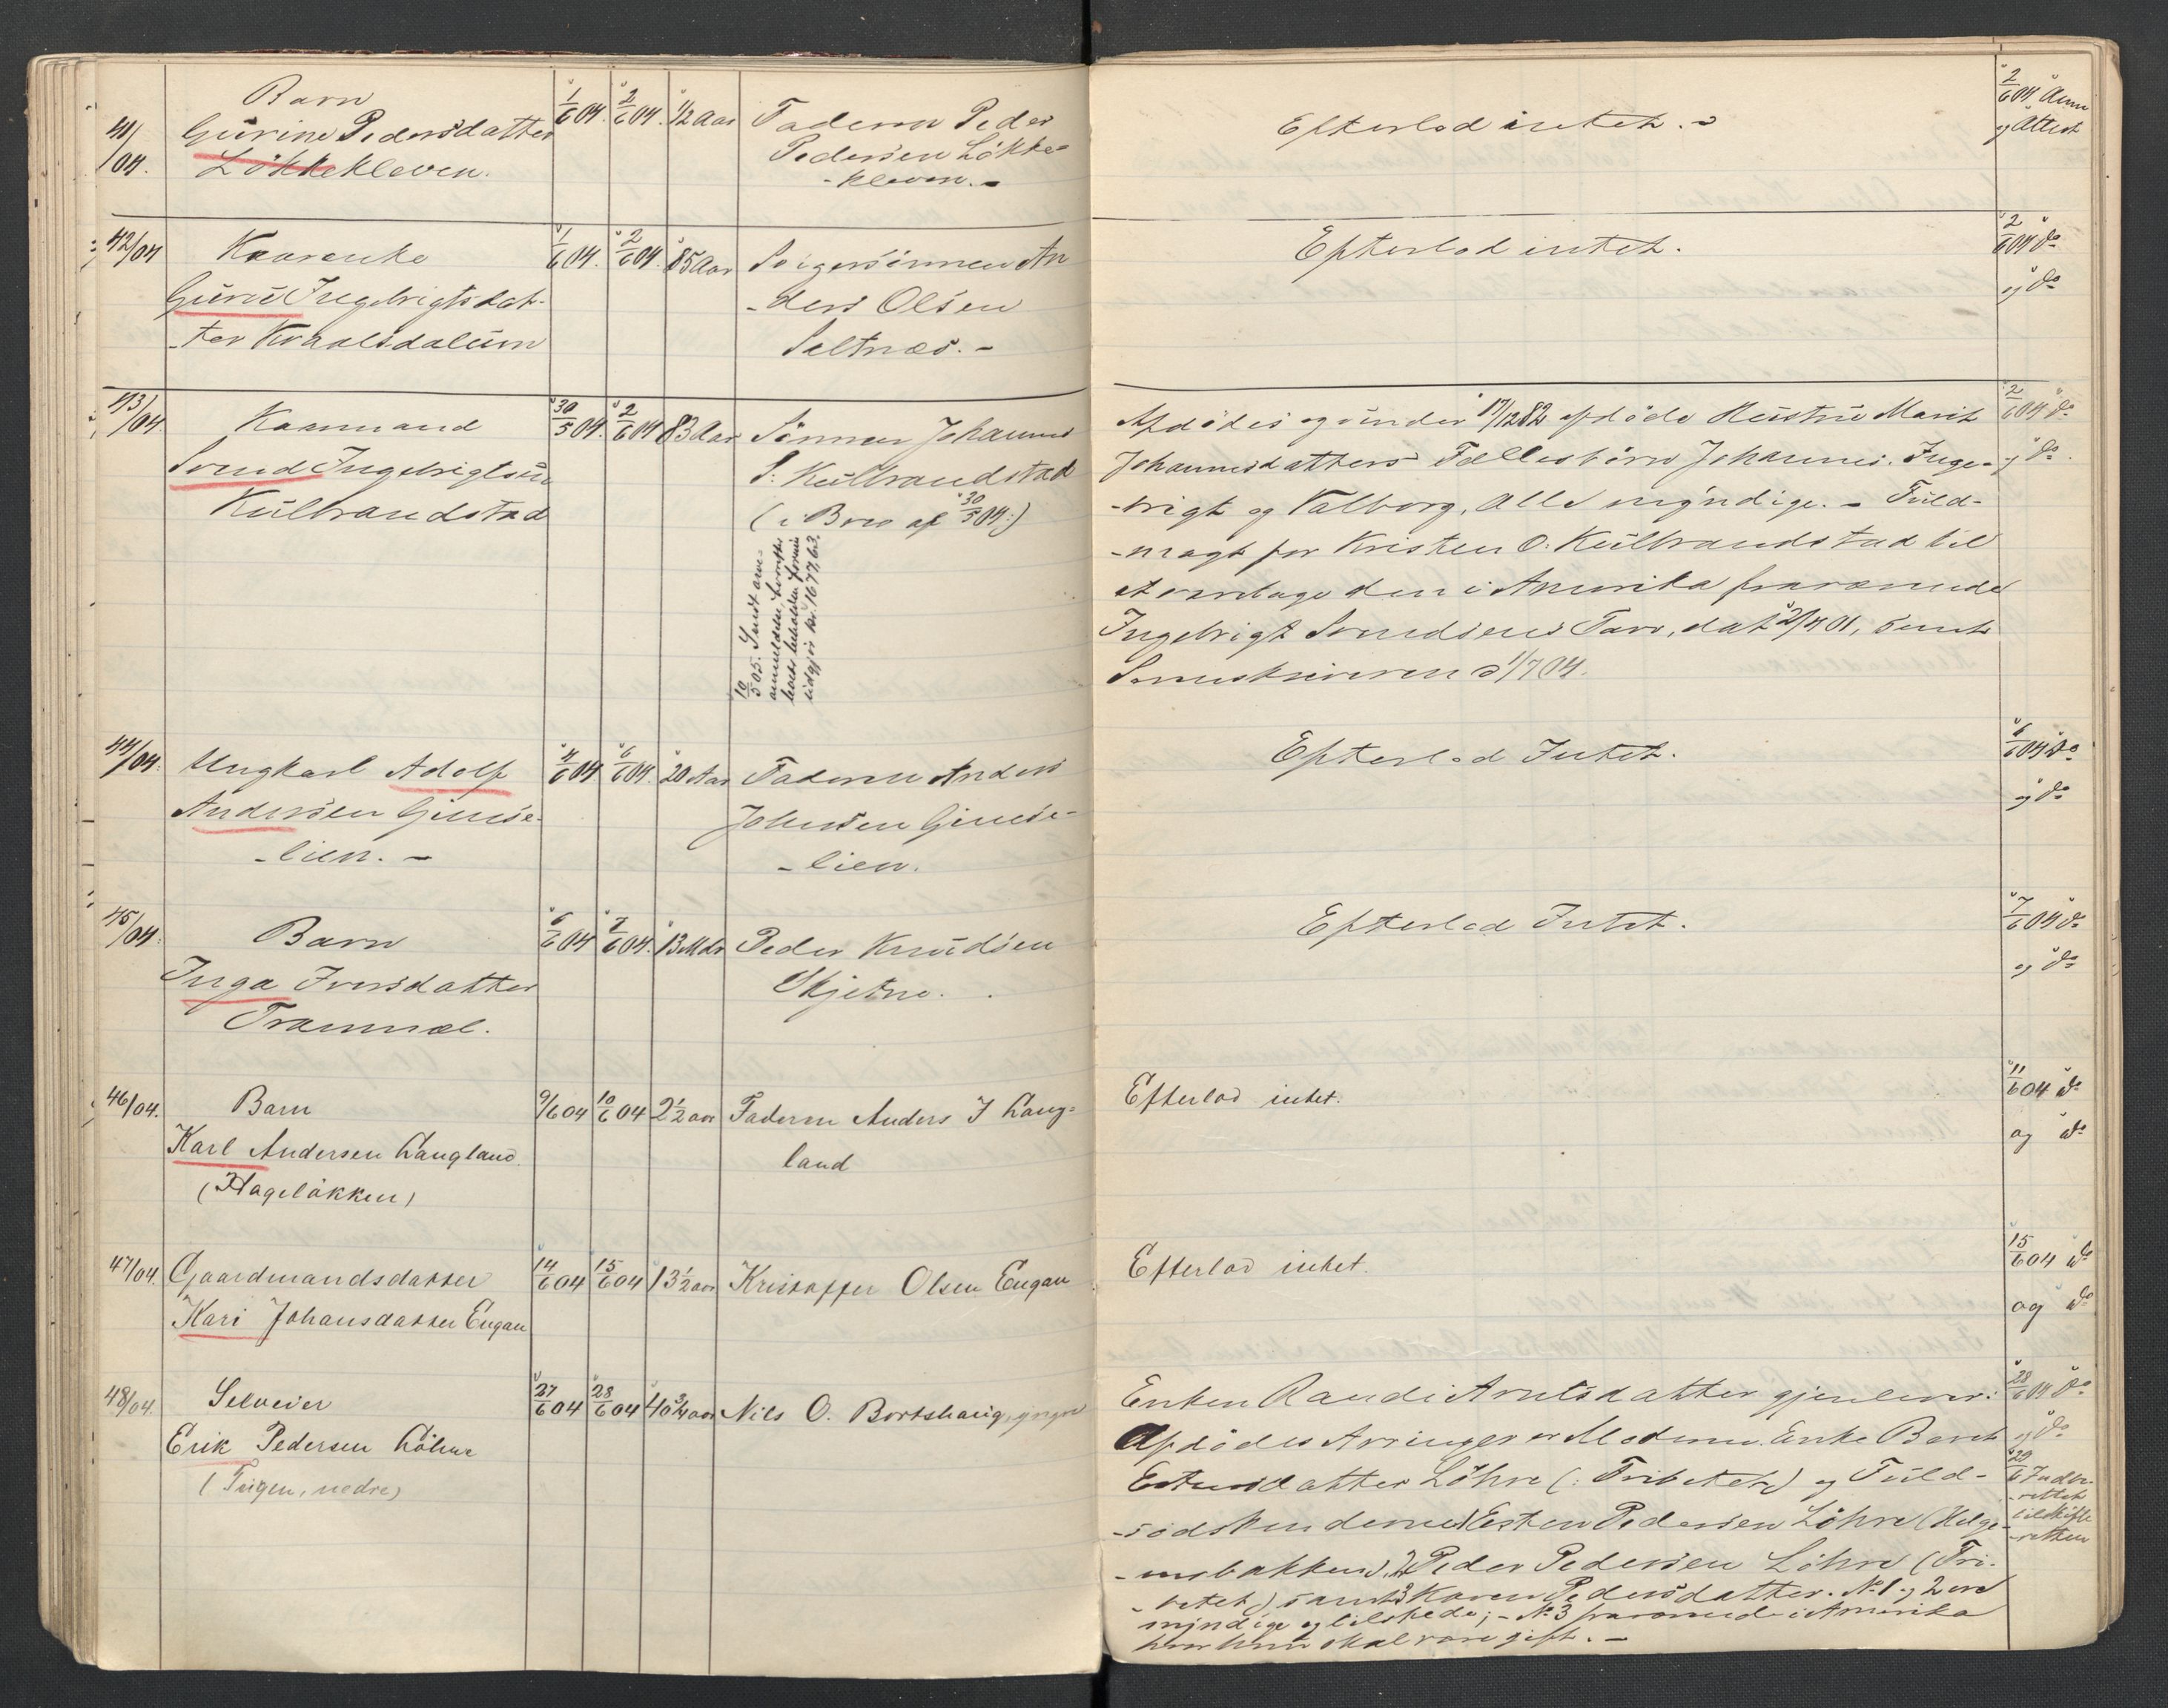 41/04.
Barn
Gurine Pedersdatter
Løkkekleven.
1/6 04.
2/6 04.
1/2 Aar
Faderen Peder
Pedersen Løkke-
-kleven. -
Efterlod intet. -
2/6 04 Anm
og Attest
42/04
Kaarenke
Guru Ingebrigtsdat-
-ter Kvaalsdalum
1/6 04.
2/6 04.
85 Aar
Svigersønnen An
-ders Olsen
Seltnæs. -
Efterlod intet.
2/6 04 do
og do
43/04.
Kaarmand
Svend Ingebrigtsen
Kulbrandstad
30/5 04.
2/6 04
83 Aar
Sønnen Johannes
S. Kulbrandstad
(i Brev af 30/5 04:)
10/5 05. Sendt arve-
anmeldelse, hvorefter
boets beholdne formue
udgjør kr. 1677,63.
Afdødes og under 17/12 82 afdøde Hustru Marit
Johannesdatters Fællesbørn Johannes, Inge-
-brigt og Valborg, alle myndige. - Fuld-
-magt for Kristen O. Kulbrandstad til
at varetage den i Amerika fraværende
Ingebrigt Svendsens Tarv, dat 2/4 01, sendt
Sorenskriveren 1/7 04.
2/6 04 do
og do.
44/04.
Ungkarl Adolf
Andersen Gimse-
-lien. -
4/6 04
6/6 04.
20 Aar
Faderen Anders
Johnsen Gimse-
-lien.
Efterlod Intet.
6/6 04 do
og do
45/04.
Barn
Inga Iversdatter
Trammæl.
6/6 04
7/6 04.
13 Mdr
Peder Knudsen
Skjetne.
Efterlod Intet.
7/6 04 do
og do
46/04.
Barn
Karl Andersen Langland
(Hageløkken)
9/6 04
10/6 04
2 1/2 aar
Faderen Anders J Lang-
land
Efterlod intet.
11/6 04 do
og do
47/04.
Gaardmandsdatter
Kari Johansdatter Engan
14/6 04
15/6 04
13 1/2 aar
Kristoffer Olsen Engan
Efterlod intet.
15/6 04 do
og do
48/04.
Selveier
Erik Pedersen Løhre
(Teigen, nedre)
27/6 04
28/6 04
40 3/4 aar
Nils O. Bortshaug, yngre
Enken Randi Arntsdatter gjenlever.
Afdødes Arvinger er Moderen Enke Beret
Estensdatter Løhre (: Tribetet) og Fuld-
-sødskenderne 1) Esten Pedersen Løhre (Helge-
-mobakken), 2) Peder Pedersen Löhre (Tri-
-betet) samt 3 Karen Pedersdatter. No 1 og 2 ere
myndige og tilstede; - No 3 fraværende i Amerika
hvor hun skal være gift. -
28/6 04 do
og do
29/6 Indbe-
-rettet
til Skifte
-retten